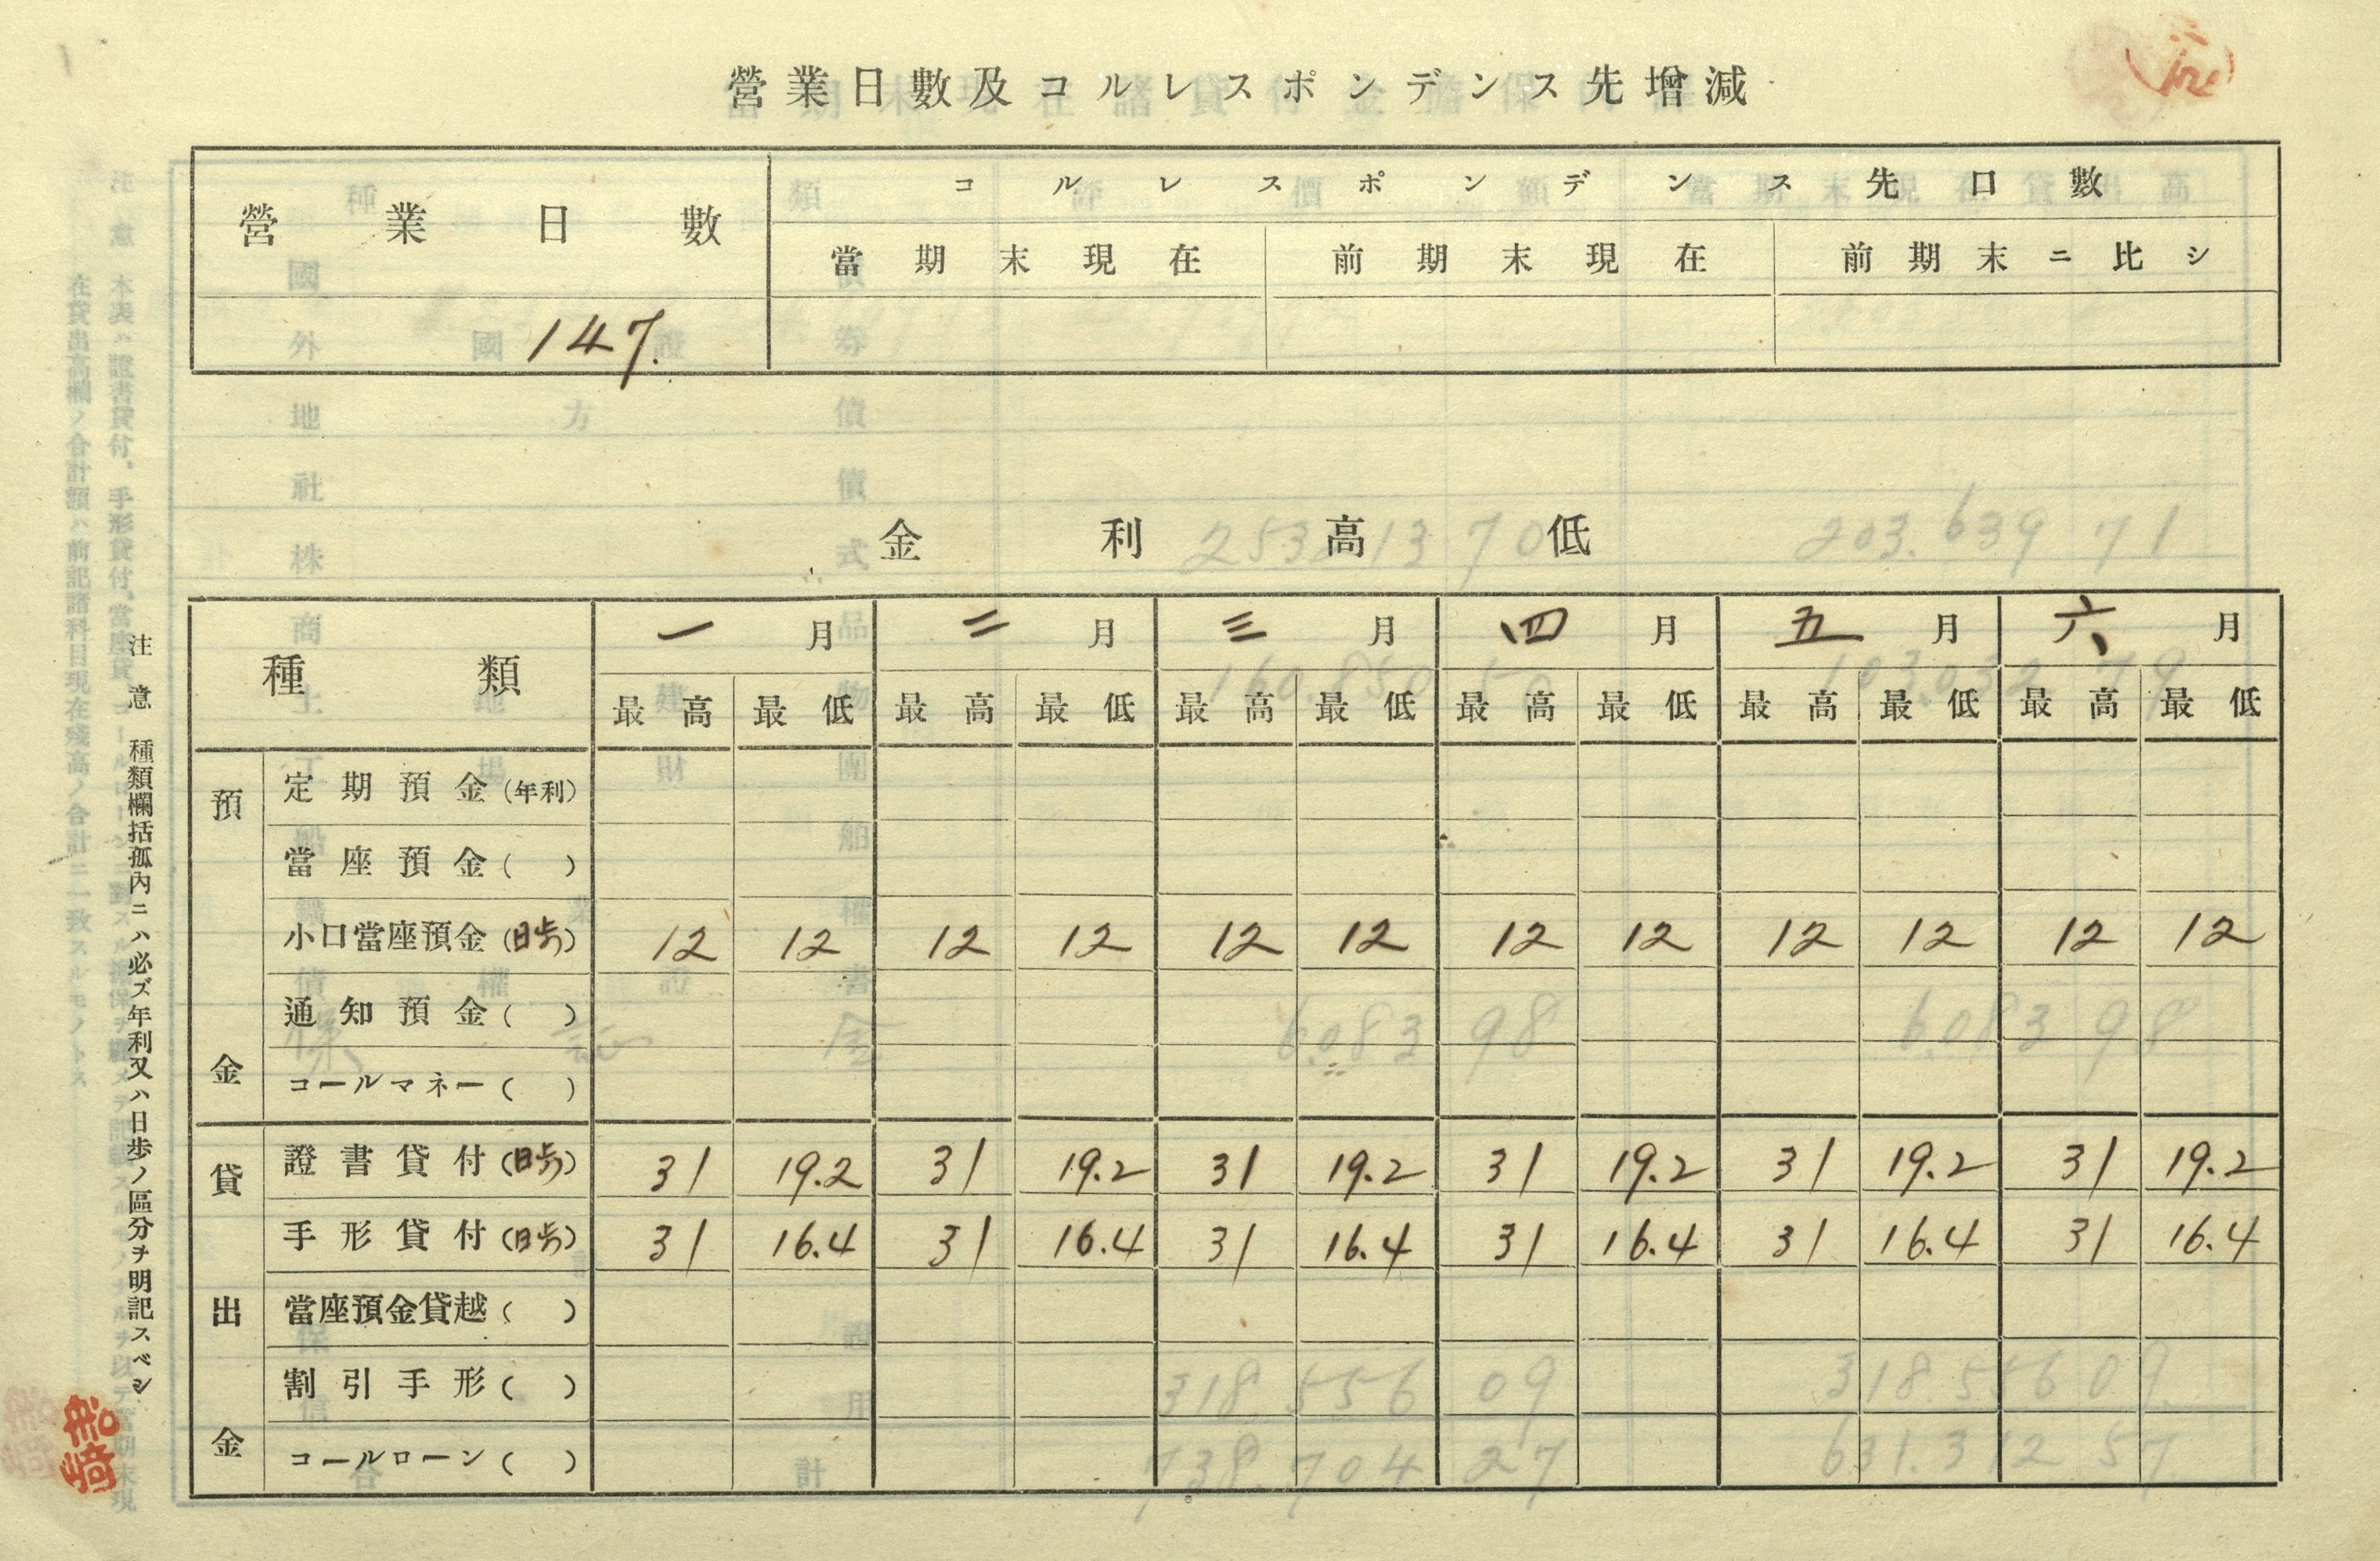 營業日數及コルレスポンデンス先增減
營業日數
コルレスポンデンス先口數
當期末現在 前期末現在 前期末ニ比シ
147.
金利高低
種類 一月 二月 三月 四月 五月 六月
最高 最低 最高 最低 最高 最低 最高 最低 最高 最低 最高 最低
預金
定期預金(年利)
當座預金( )
小口當座預金(日歩) 12 12 12 12 12 12 12 12 12 12 12 12
通知預金( )
コールマネー( )
貸出金
證書貸付(日歩) 31 19.2 31 19.2 31 19.2 31 19.2 31 19.2 31 19.2
手形貸付(日歩) 31 16.4 31 16.4 31 16.4 31 16.4 31 16.4 31 16.4
當座預金貸越( )
割引手形( )
コールローン( )
注意 種類欄括孤內ニハ必ズ年利又ハ日歩ノ區分ヲ明記スベシ
船崎